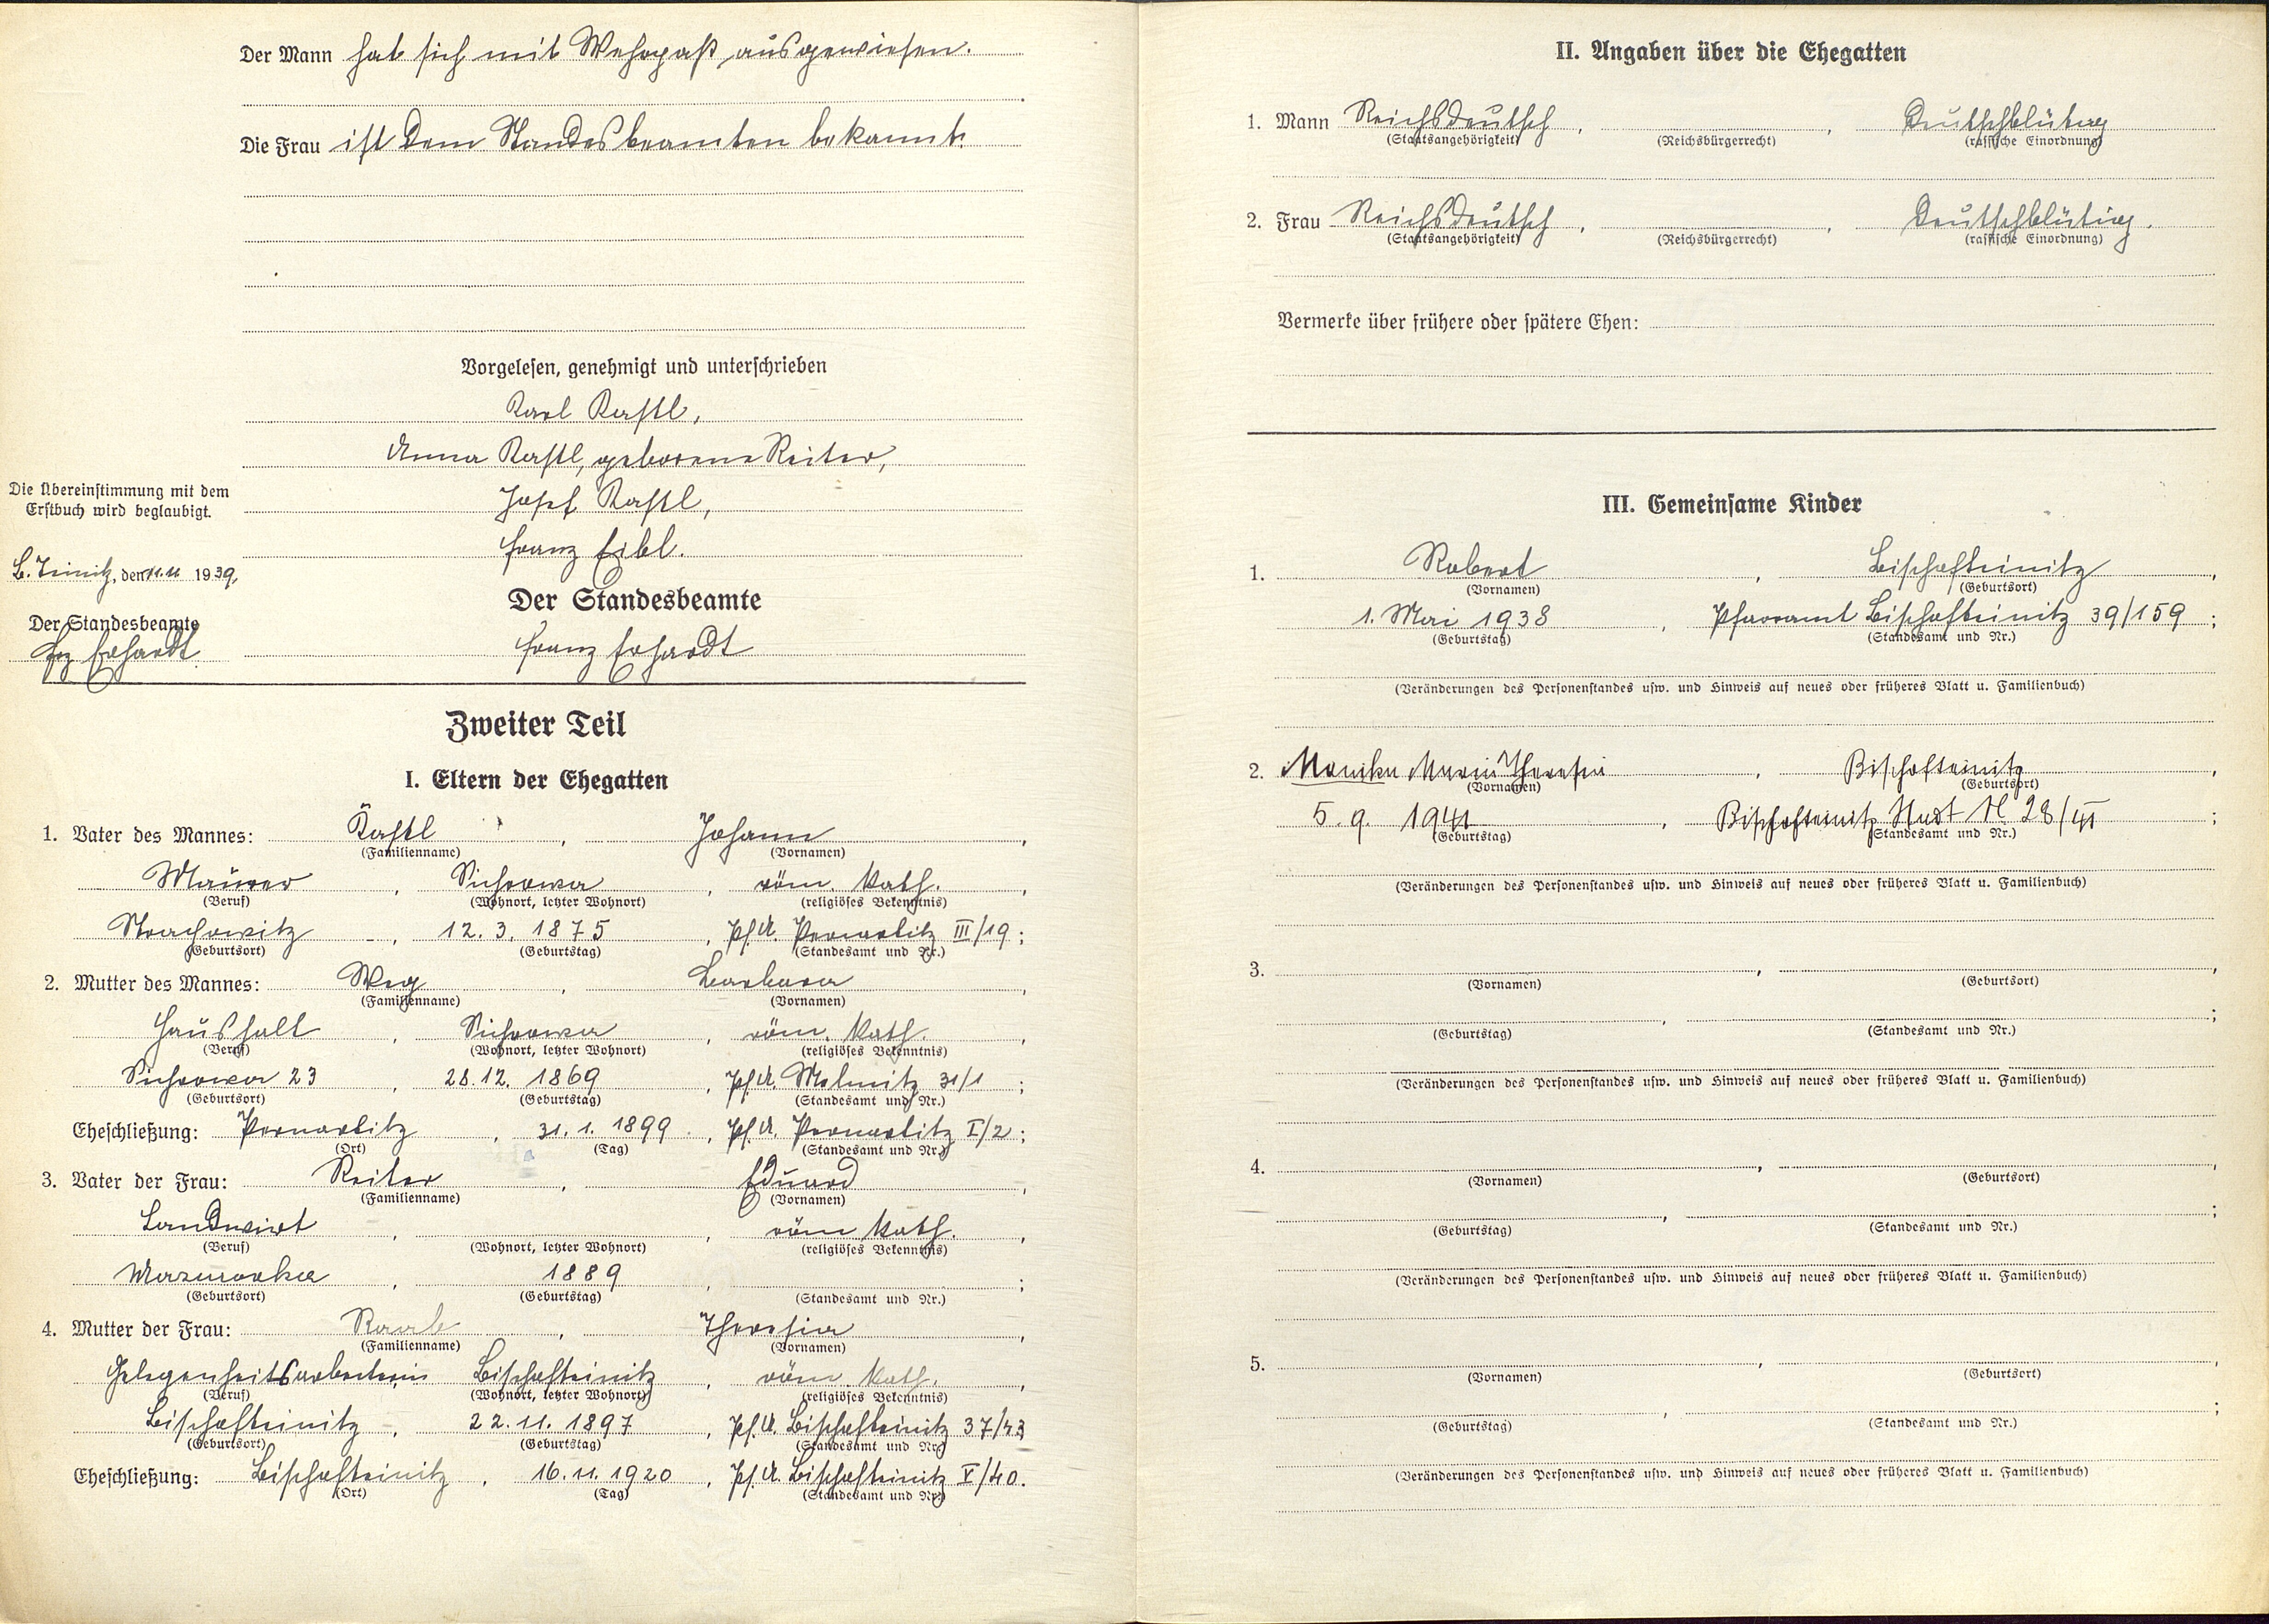 Der Mann hat sich mit Wehrpaß ausgewiesen.
Die Frau ist dem Standesbeamten bekannt.
Vorgelesen, genehmigt und unterschrieben
Karl Kastl,
Anna Kastl, geborene Reiter,
Josef Kastl,
Franz Eibl.
Die Übereinstimmung mit dem
Erstbuch wird beglaubigt.
B. Teinitz, den 11.11 1939.
Der Standesbeamte
Frz Erhardt
Der Standesbeamte
Franz Erhardt
Zweiter Teil
I. Eltern der Ehegatten
1. Vater des Mannes: Kastl, Johann,
(Familienname) (Vornamen)
Maurer, Sichrowa, röm. kath.,
(Beruf) (Wohnort, letzter Wohnort) (religiöses Bekenntnis)
Strachowitz, 12.3.1875, Pf.A. Pernartitz III/19;
(Geburtsort) (Geburtstag) (Standesamt und Nr.)
2. Mutter des Mannes: Weg, Barbara,
(Familienname) (Vornamen)
Haushalt, Sichrowa, röm. kath.,
(Beruf) (Wohnort, letzter Wohnort) (religiöses Bekenntnis)
Sichrowa 23, 28.12.1869, Pf.A. Melmitz 31/1;
(Geburtsort) (Geburtstag) (Standesamt und Nr.)
Eheschließung: Pernartitz, 31.1.1899, Pf.A. Pernartitz I/2;
(Ort) (Tag) (Standesamt und Nr.)
3. Vater der Frau: Reiter, Eduard,
(Familienname) (Vornamen)
Landwirt, , röm kath.,
(Beruf) (Wohnort, letzter Wohnort) (religiöses Bekenntnis)
, 1889, ;
(Geburtsort) (Geburtstag) (Standesamt und Nr.)
4. Mutter der Frau: Raab, Theresia,
(Familienname) (Vornamen)
Gelegenheitsarbeiterin, Bischofteinitz, röm. kath.,
(Beruf) (Wohnort, letzter Wohnort) (religiöses Bekenntnis)
Bischofteinitz, 22.11.1897, Pf.A. Bischofteinitz 37/43
(Geburtsort) (Geburtstag) (Standesamt und Nr.)
Eheschließung: Bischofteinitz, 16.11.1920, Pf.A. Bischofteinitz V/40.
(Ort) (Tag) (Standesamt und Nr.)
II. Angaben über die Ehegatten
1. Mann Reichsdeutsch, , Deutschblütig
(Staatsangehörigkeit) (Reichsbürgerrecht) (rassische Einordnung)
2. Frau Reichsdeutsch, , Deutschblütig.
(Staatsangehörigkeit) (Reichsbürgerrecht) (rassische Einordnung)
Vermerke über frühere oder spätere Ehen:
III. Gemeinsame Kinder
1. Robert, Bischofteinitz,
(Vornamen) (Geburtsort)
1. Mai 1938, Pfarramt Bischofteinitz 39/159;
(Geburtstag) (Standesamt und Nr.)
(Veränderungen des Personenstandes usw. und Hinweis auf neues oder früheres Blatt u. Familienbuch)
2. Monika Maria Theresia, Bischofteinitz,
(Vornamen) (Geburtsort)
5. 9. 1941, Bischofteinitz Stadt N 28/41;
(Geburtstag) (Standesamt und Nr.)
(Veränderungen des Personenstandes usw. und Hinweis auf neues oder früheres Blatt u. Familienbuch)
3. , ,
(Vornamen) (Geburtsort)
, ;
(Geburtstag) (Standesamt und Nr.)
(Veränderungen des Personenstandes usw. und Hinweis auf neues oder früheres Blatt u. Familienbuch)
4. , ,
(Vornamen) (Geburtsort)
, ;
(Geburtstag) (Standesamt und Nr.)
(Veränderungen des Personenstandes usw. und Hinweis auf neues oder früheres Blatt u. Familienbuch)
5. , ,
(Vornamen) (Geburtsort)
, ;
(Geburtstag) (Standesamt und Nr.)
(Veränderungen des Personenstandes usw. und Hinweis auf neues oder früheres Blatt u. Familienbuch)